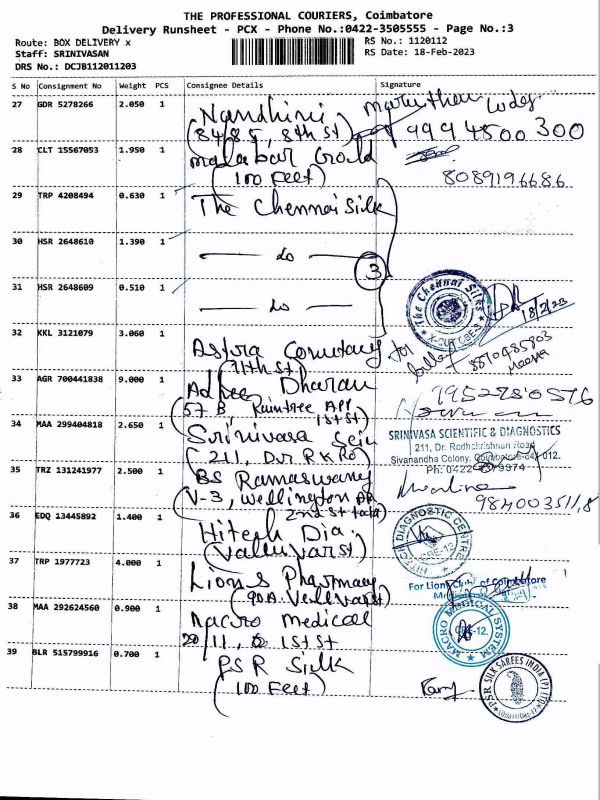 THE PROFESSIONAL COURIERS, Coimbatore
Delivery Runsheet - PCX - Phone No.:0422-3505555 - Page No.:3
Route: BOX DELIVERY x
RS No.: 1120112
Staff: SRINIVASAN
RS Date: 18-Feb-2023
DRS No.: DCJB112011203
S No Consignment No Weight PCS Consignee Details Signature
27 GDR 5278266 2.050 1 Nandhini
(84/85, 8th st)
9994500300
28 CLT 15567053 1.950 1 Malabar Gold
(100 Feet)
8089196686
29 TRP 4208494 0.630 1 The Chennai Silk
30 HSR 2648610 1.390 1 — do —
3
31 HSR 2648609 0.510 1 — do —
The Chennai Silks
18/2/23
32 KKL 3121079 3.060 1
(11th st)
33 AGR 700441838 9.000 1 Dharan
(57 B, Raintree Apt
1st st)
34 MAA 299404818 2.650 1 Srinivasa Scin
(211, D.r R K Ro)
SRINIVASA SCIENTIFIC & DIAGNOSTICS
211, Dr. Radhakrishnan Road
Sivanandha Colony, Coimbatore-641 012.
35 TRZ 131241977 2.500 1 BS Ramaswamy
V-3, Wellington
36 EDQ 13445892 1.400 1 Hitech Dia.
(Valluvar st)
HITECH DIAGNOSTIC CENTRE
CBE-12
37 TRP 1977723 4.000 1 Lions Pharmacy
(90A. Valluvar st)
For Lions Club of Coimbatore
38 MAA 292624560 0.900 1 Macro Medical
20/11, 1st st
MACRO MEDICAL SYSTEM
CBE-12.
39 BLR 515799916 0.700 1 PS R Silk
(100 Feet)
PSR SILK SAREES INDIA (P) LTD